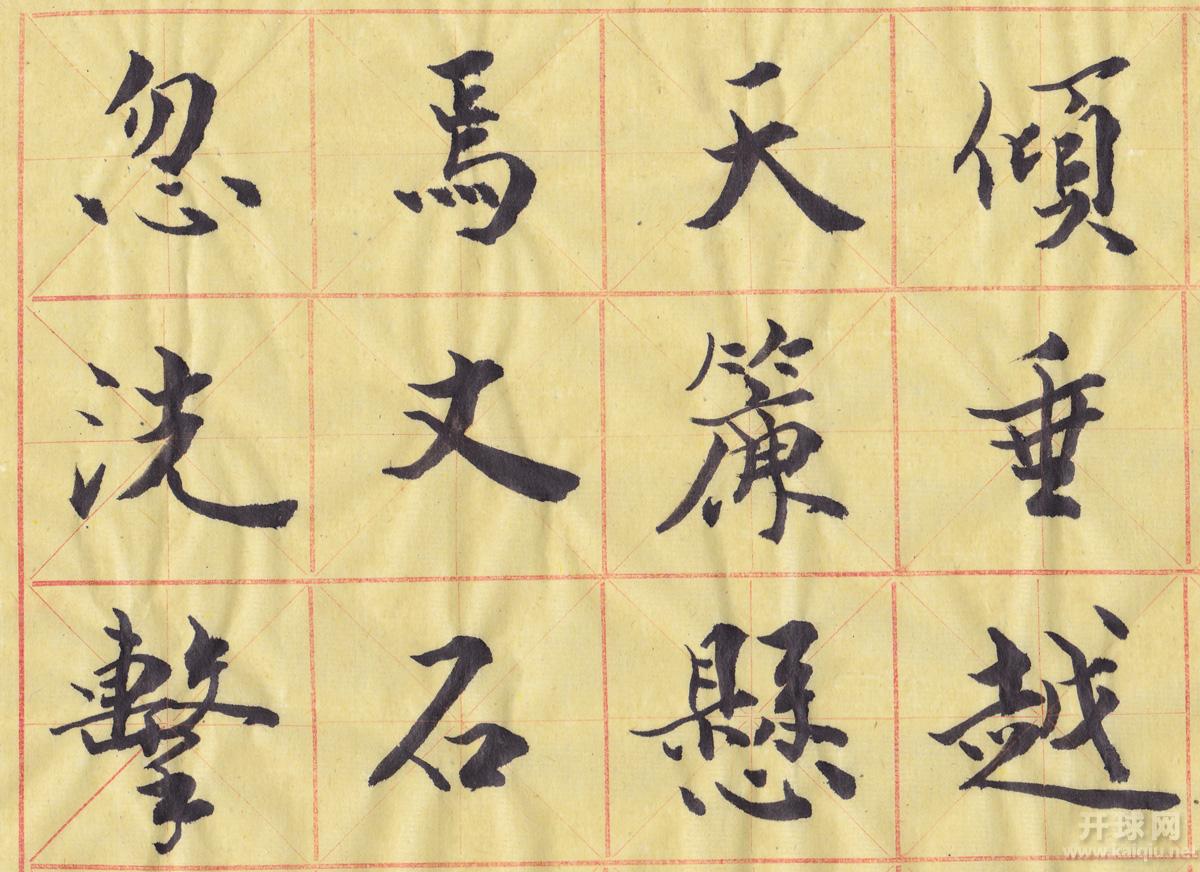 傾垂越
天簾懸
焉丈石
忽洗擊
开球网
www.kaiqiu.net